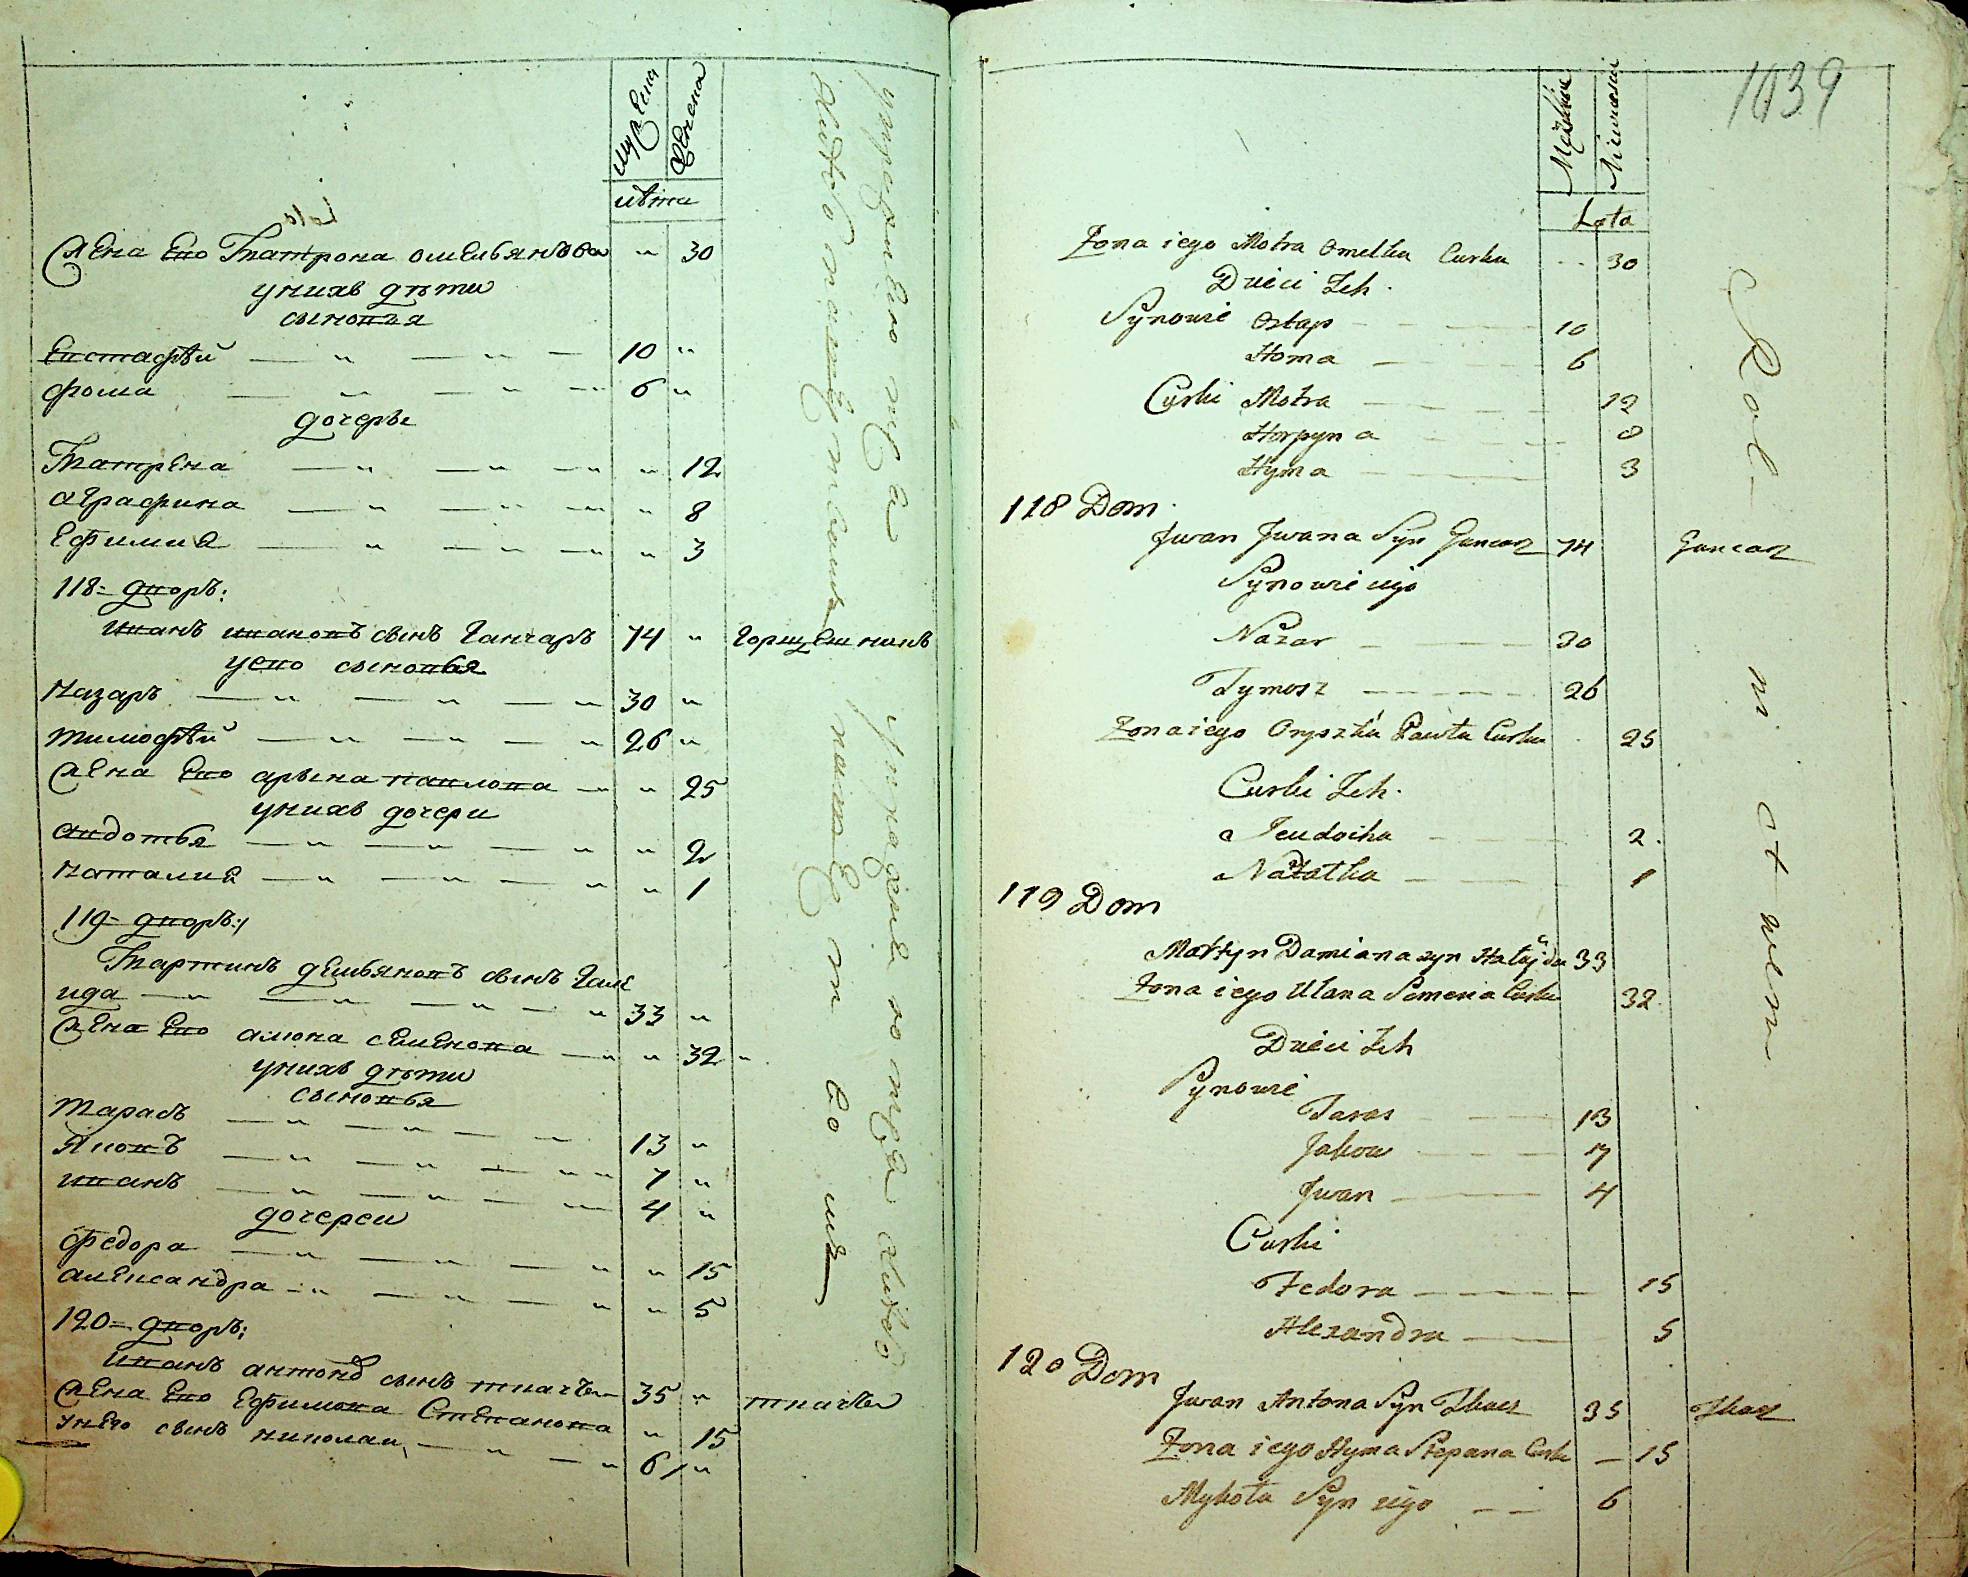 мужеска
женска
лѣта
жена его Матрона омельянова " 30
у нихъ дѣти
сыновья
Евстафѣй — " — " — 10 "
фома — " — " — 6 "
дочеры
Матрена — " — " — " 12
аграфина — " — " — " 8
Ефимия — " — " — " 3
118= дворъ:
иванъ ивановъ сынъ Ганчаръ 74 " горшешникъ
у его сыновья
Назаръ — " — " — " 30 "
тимофѣй — " — " — " 26 "
жена его арына павлова — " " 25
у нихъ дочери
авдотья — " — " — " " 2
наталия — " — " — " " 1
119= дворъ:
Мартинъ демьяновъ сынъ Гала
ида — " — " — " 33 "
жена его алюна семенова — " " 32 "
у нихъ дѣти
сыновья
тарасъ — " — " — 13 "
яковъ — " — " — " 7 "
иванъ — " — " — " 4 "
дочереи
федора — " — " — " " 15
александра — " — " — " " 5
120= дворъ:
иванъ антоновъ сынъ ткачъ — 35 " ткачъ
жена его Ефимова Степанова " 15
у него сынъ николаи — " — " 6 "
1039
Męzkie
Niewieskie
Lata
Zona iego Motra Omelka Curka - - 30
Dzieci Ich.
Synowie Ostap - - - 10
Homa - - - 6
Curki Motra - - - 12
Horpyna - - - 8
Hyma - - - 3
118 Dom
Jwan Jwana Syn Gancarz 74 Gancarz
Synowie iego
Nazar - - - 30
Tymosz - - - 26
Zona iego Oryszka Pawła Curka 25
Curki Ich.
Jeudoika - - - 2.
Natałka - - - 1
119 Dom
Martyn Damiana syn Hałajda 33
Zona iego Ulana Semena Curka 32.
Dzieci Ich
Synowie
Taras - - - 13
Jakow - - - 7
Jwan - - - 4
Curki
Fedora - - - 15
Alexandra - - - 5
120 Dom
Jwan Antona Syn Tkacz 35 Tkacz
Zona iego Hyma Stepana Curka - 15
Mykoła Syn iego - - 6
Rol-
ni
ctwem